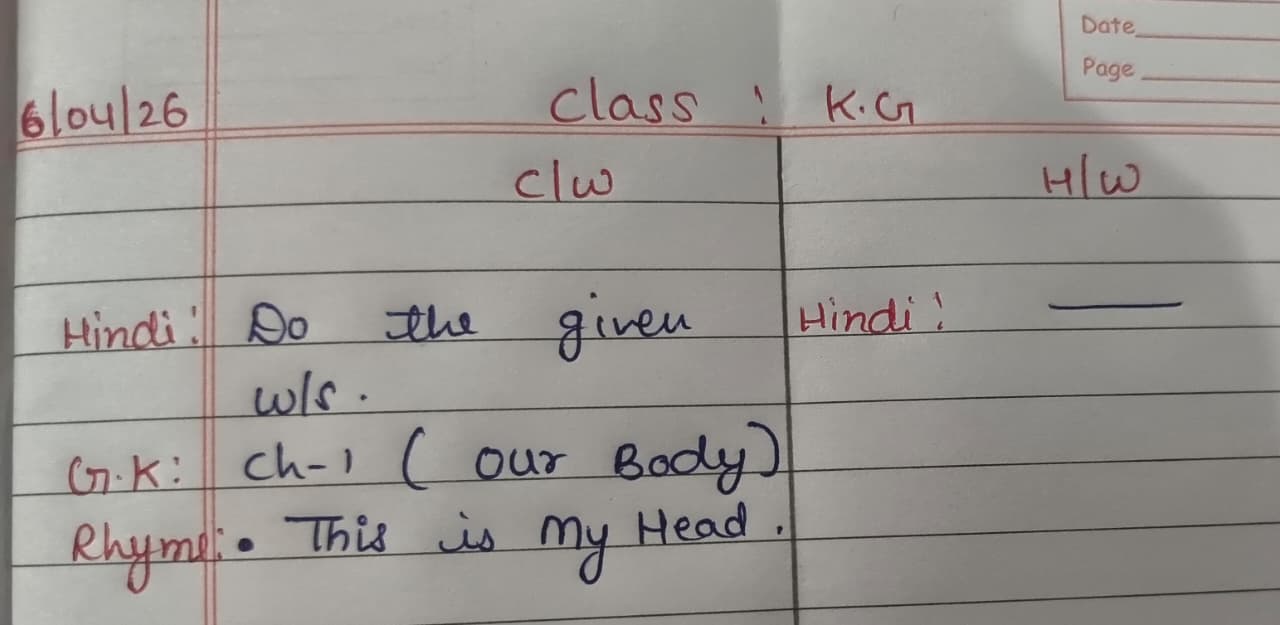 Date
Page
6/04/26 Class : K.G
C/W H/W
Hindi: Do the given Hindi: —
w/s.
G.K: Ch-1 ( Our Body)
Rhyme: • This is My Head.